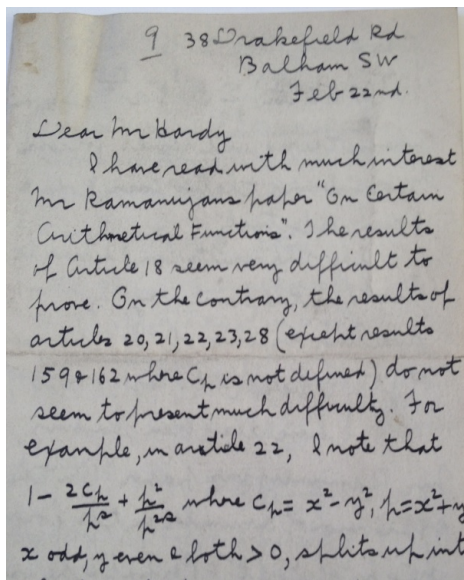 9 38 Drakefield Rd
Balham SW
Feb 22nd.
Dear Mr Hardy
I have read with much interest
Mr Ramanujans paper "On Certain
Arithmetical Functions". The results
of Article 18 seem very difficult to
prove. On the contrary, the results of
articles 20, 21, 22, 23, 28 (except results
159 & 162 where Cₚ is not defined) do not
seem to present much difficulty. For
example, in article 22, I note that
1 - 2Cₚ/pˢ + p²/p²ˢ where Cₚ = x² - y², p = x² + y
x odd, y even & both > 0, splits up int